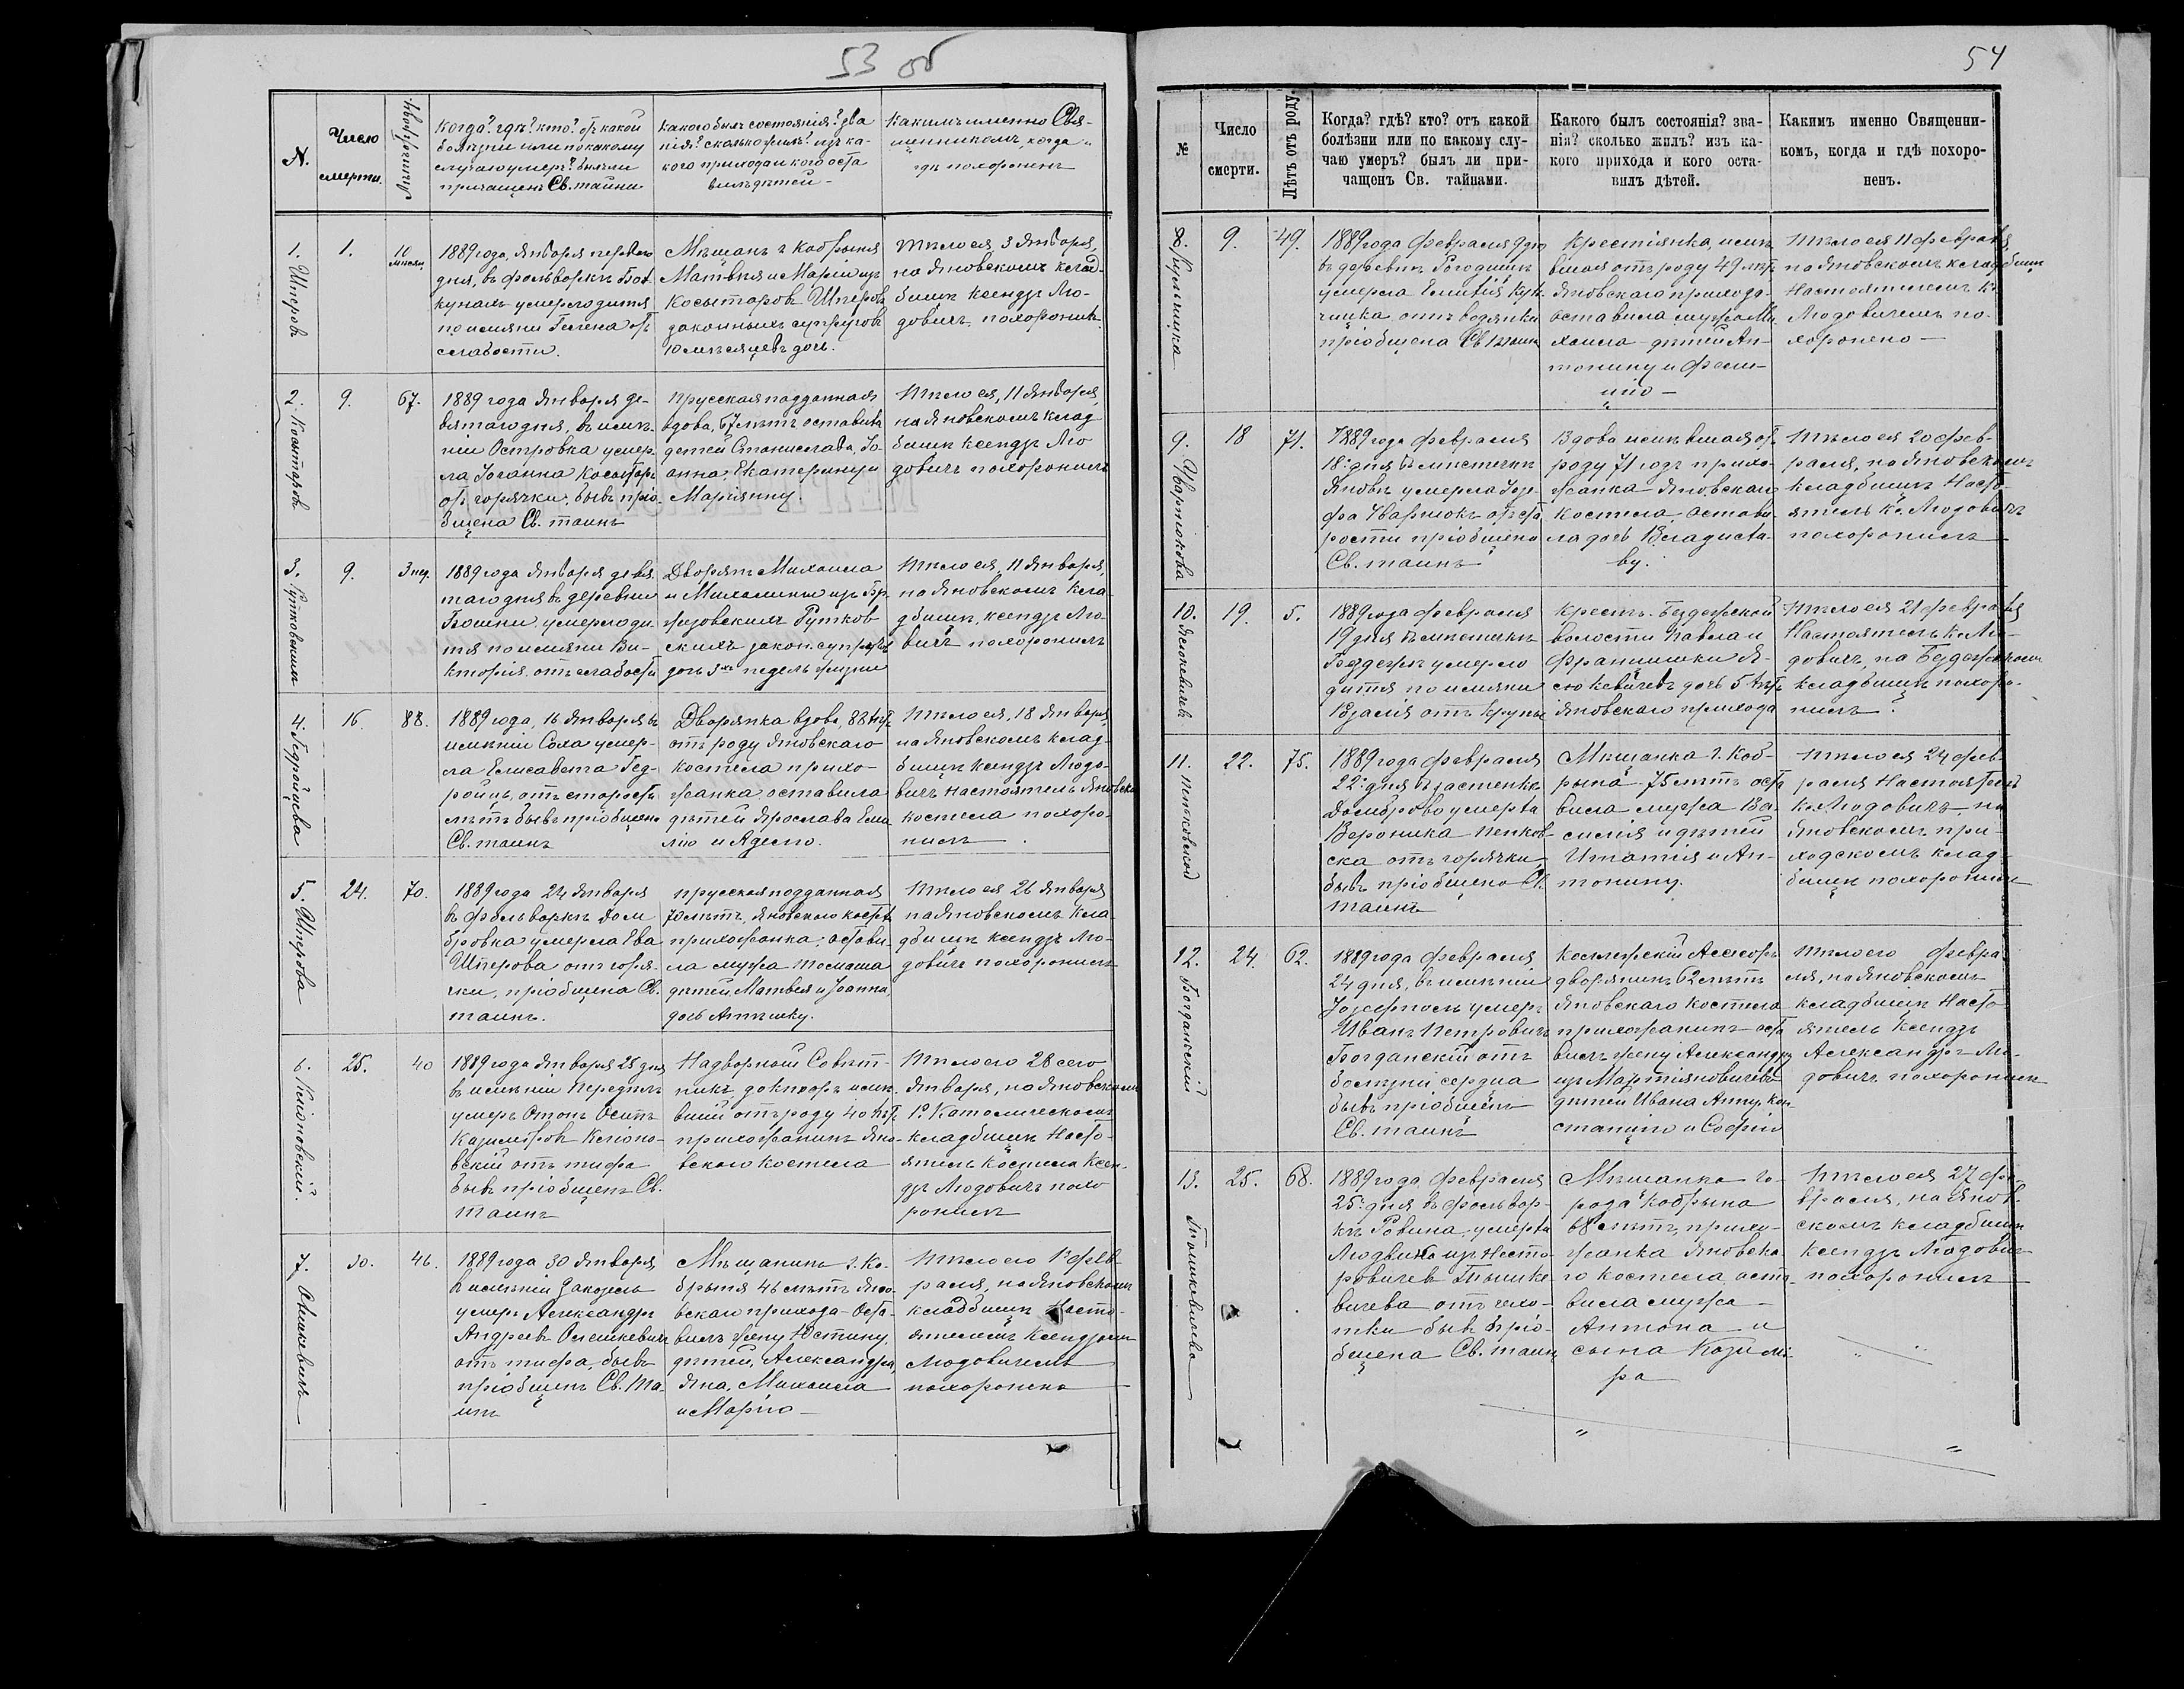 53 об
N.
Число
смерти.
Лѣтъ отъ роду.
Когда? гдѣ? кто? отъ какой
болѣзни или по какому
случаю умеръ? былъ ли
причащенъ Св. тайни
Какого былъ состоянія? зва
нія? сколько жилъ? изъ ка-
кого прихода и кого оста
вилъ дѣтей –
Какимъ именно Свя-
щенникомъ, когда и
гдѣ похороненъ
1.
Шперовъ
1.
10 мѣсяц.
1889 года, Января перваго
дня, въ фольваркѣ
умерло дитя
по имяни Гелена отъ
слабости.
Мѣщанъ г Кобрыня
Матвѣя и Маріи изъ
Косытаровъ Шперовъ
законныхъ супруговъ
10 мѣсяцевъ дочь.
Тѣло ея, 3 Января,
на Яновскомъ клад-
бищѣ Ксендзъ Лю-
довичъ похоронилъ.
2.
9.
67.
1889 года Января де-
вятаго дня, въ имѣ-
ніи Островка умер-
ла Іоганна
отъ горячки, бывъ пріо-
бщена Св. таинъ
прусская подданная
вдова, 67 лѣтъ оставила
детей Станислава, Іо-
анна, Екатерину и
Маріянну.
Тѣло ея, 11 Января,
на Яновскомъ клад
бищѣ Ксендзъ Лю
довичъ похоронилъ
3.
Рутковскими
9.
3 нед.
1889 года Января девя-
таго дня въ деревни
умерло ди-
тя по имяни Ви-
кторія, отъ слабости
Дворянъ Михаила
и Михалины изъ
Рутков-
скихъ закон. супруговъ
дочь 3хъ недель жизни
Тѣло ея, 11 Января,
на Яновскомъ кла-
дбищѣ, ксендзъ Лю-
вичъ похоронилъ
4.
Гедройцова
16.
88.
1889 года, 16 Января въ
имѣніи Соха умер-
ла Елисавета Гед-
ройцъ, отъ старости
лѣтъ бывъ пріобщена
Св. таинъ
Дворянка вдова, 88 лѣтъ
отъ роду Яновскаго
костела прихо-
жанка оставила
дѣтей Ярослава Еми
лію и Аделю.
Тѣло ея, 18 Января
на Яновскомъ клад-
бищѣ ксендзъ Людо-
вичъ настоятель Яновска
костела похоро-
нилъ.
5.
Шперова
24.
70.
1889 года 24 Января
въ фольваркѣ Дом
бровка умерла Ева
Шперова отъ горя-
чки, пріобщена Св.
таинъ.
прусская подданная
70 лѣтъ, Яновскаго костела
прихожанка, остави-
ла мужа Томаша
дѣтей, Матвея и Іоанна,
дочь Агнѣшку.
Тѣло ея 26 Января
на Яновскомъ кла-
дбищѣ ксендзъ Лю-
довичъ похоронилъ
6.
25.
40
1889 года Января 25 дня
въ имѣніи
умеръ Отонъ Осипъ
Казимировъ
вскій отъ тифа
бывъ пріобщенъ Св.
таинъ
Надворный Совѣт-
никъ, докторъ имѣ-
вшій отъ роду 40 лѣт
прихожанинъ Яно-
вскаго костела
Тѣло его 28 сего
Января, на Яновскомъ
Р. Католическомъ
кладбищѣ Насто-
ятель Костела Ксен-
дзъ Людовичъ похо
ронилъ
7.
Олешкевичъ
30.
46.
1889 года 30 Января,
въ имѣніи Закозель
умеръ Александръ
Андреевъ Олешкевичъ
отъ тифа, бывъ
пріобщенъ Св. Та-
инъ
Мѣщанинъ г. Ко-
брыня 46 лѣтъ Яно-
вскаго прихода – Оста-
вилъ жену Юстину,
дѣтей, Александра,
Яна, Михаила
и Марію –
Тѣло его 1 Фев-
раля, на Яновскомъ
кладбищѣ Насто-
ятелемъ Ксендзомъ
Людовичемъ
похоронено
54
№
Число
смерти.
Лѣтъ отъ роду.
Когда? гдѣ? кто? отъ какой
болѣзни или по какому слу-
чаю умеръ? былъ ли при-
чащенъ Св. тайнами.
Какого былъ состоянія? зва-
нія? сколько жилъ? изъ ка-
кого прихода и кого оста-
вилъ дѣтей.
Какимъ именно Священни-
комъ, когда и гдѣ похоро-
ненъ.
8.
9.
49.
1889 года Февраля 9 дня
въ деревнѣ
умерла Емилія
отъ водянки
пріобщена Св. таинъ
Крестіянка, имѣ-
вшая отъ роду 49 лѣтъ
Яновскаго прихода
оставила мужа Ми-
хаила – дѣтей Ан-
тонину и Фели-
цію –
Тѣло ея 11 февраля,
на Яновскомъ кладбищѣ
Настоятелемъ К.
Людовичемъ по-
хоронено –
9.
18
71.
1889 года Февраля
18 дня въ мѣстечкѣ
Яновѣ умерла Юзе-
фа отъ ста-
рости пріобщена
Св. таинъ
Вдова имѣвшая отъ
роду 71 годъ прихо-
жанка Яновскаго
Костела, остави-
ла дочь Владисла-
ву.
Тѣло ея 20 фев-
раля, на Яновскомъ
кладбищѣ Насто-
ятель Кс. Людовичъ
похоронилъ
10.
19.
5.
1889 года Февраля
19 дня въ мѣстечкѣ
Бездежѣ умерло
дитя по имяни
отъ крупы
Крестъ. Бездежской
волости Павла и
Францишки Я-
сюкевичевъ дочь 5 лѣтъ
Яновскаго прихода
Тѣло ея 21 февраля
Настоятель К. Лю-
довичъ, на Бездежскомъ
кладбищѣ похоро-
нилъ.
11.
Пеньковской
22.
75.
1889 года Февраля
22 дня въ застѣнкѣ
Домброво умерла
Вероника Пеньков-
ска отъ горячки,
бывъ пріобщена Св.
таинъ
Мѣщанка г. Коб-
рына 75 лѣтъ оста
вила мужа Ва-
силія и дѣтей
Игнатія и Ан-
тонину.
Тѣло ея 24 фев-
раля Настоятель
Кс. Людовичъ на
Яновскомъ при-
ходскомъ клад-
бищѣ похоронилъ
12.
Богданскій
24.
62.
1889 года Февраля
24 дня, въ имѣніи
Іозефполь умеръ
Иванъ Петровичъ
Богданскій отъ
болѣзни сердца
бывъ пріобщенъ
Св. таинъ
Коллежскій Ассесоръ
дворянинъ 62 лѣтъ
Яновскаго Костела
прихожанинъ – оста
вилъ жену Александру
изъ Мартіяновичевъ
дѣтей Ивана Анну, Кон-
станцію и Софію
Тѣло его февра-
ля, на Яновскомъ
кладбищѣ Насто-
ятель Ксендзъ
Александръ Лю-
довичъ похоронилъ
13.
25.
68.
1889 года Февраля
25 дня въ фольвар-
кѣ Ровина, умерла
Людвика изъ Несто-
ровичевъ Тышке-
вичева отъ чехо-
тки бывъ пріо-
бщена Св. таинъ
Мѣщанка го-
рода Кобрына
68 лѣтъ, прихо-
жанка Яновска-
го костела оста-
вила мужа –
Антона и
сына Казими-
ра
Тѣло ея 27 фе-
враля, на Янов-
скомъ кладбищѣ
Ксендзъ Людовичъ
похоронилъ